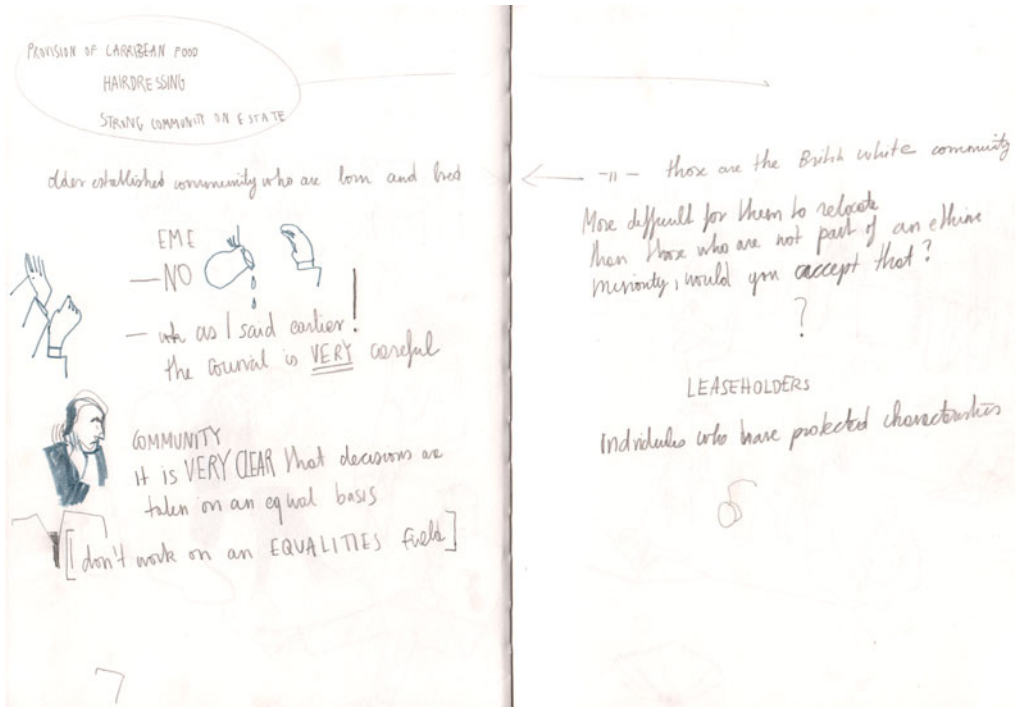 PROVISION OF CARRIBEAN FOOD
HAIRDRESSING
STRONG COMMUNITY ON ESTATE
older established community who are born and bred
EME
— NO
— as I said earlier!
the council is VERY careful
COMMUNITY
it is VERY CLEAR that decisions are
taken on an equal basis
[I don't work on an EQUALITIES field]
7
— " — those are the British white community
More difficult for them to relocate
than those who are not part of an ethinc
minority, would you accept that?
?
LEASEHOLDERS
Individules who have protected characteristics
8